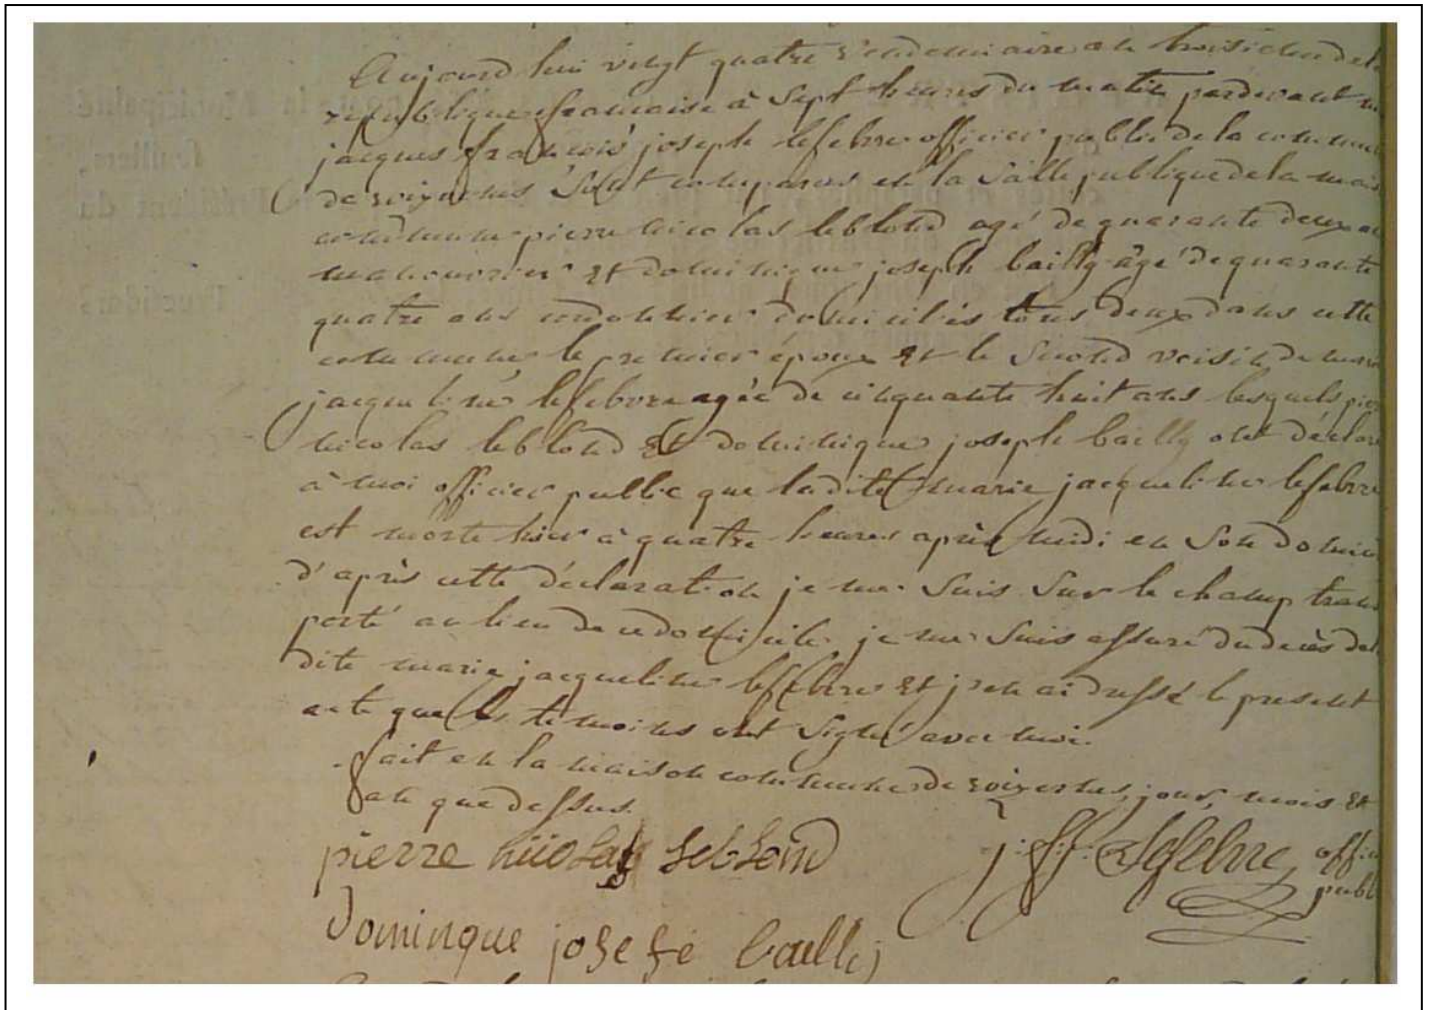 Aujourd hui vingt quatre vendemiaire an troisieme de la
republique francaise à sept heures du matin pardevant m
jacques francois joseph lefebvre officier public de la commun
de voixennes sont comparus en la salle publique de la mais
commune pierre nicolas leblond agé de quarante deux an
manouvrier et dominique joseph bailly âgé de quarante
quatre ans cordonnier domiciliés tous deux dans cette
commune, le premier époux et le second voisin de marie
jacqueline lefebvre agée de cinquante huit ans lesquels pier
nicolas leblond et dominique joseph bailly ont déclaré
à moi officier public que ladite marie jacqueline lefebvre
est morte hier à quatre heures après midi en son domici
d'après cette déclaration je me suis sur le champ trans
porté au lieu de ce domicile, je me suis assuré du decès de la
dite marie jacqueline lefebvre et j'en ai dressé le present
acte que les temoins ont signé avec moi.
fait en la maison commune de jour, mois et
an que dessus.
pierre nicolas leblond j. f. j. Lefebvre offici
publ
Dominque josefe bailli